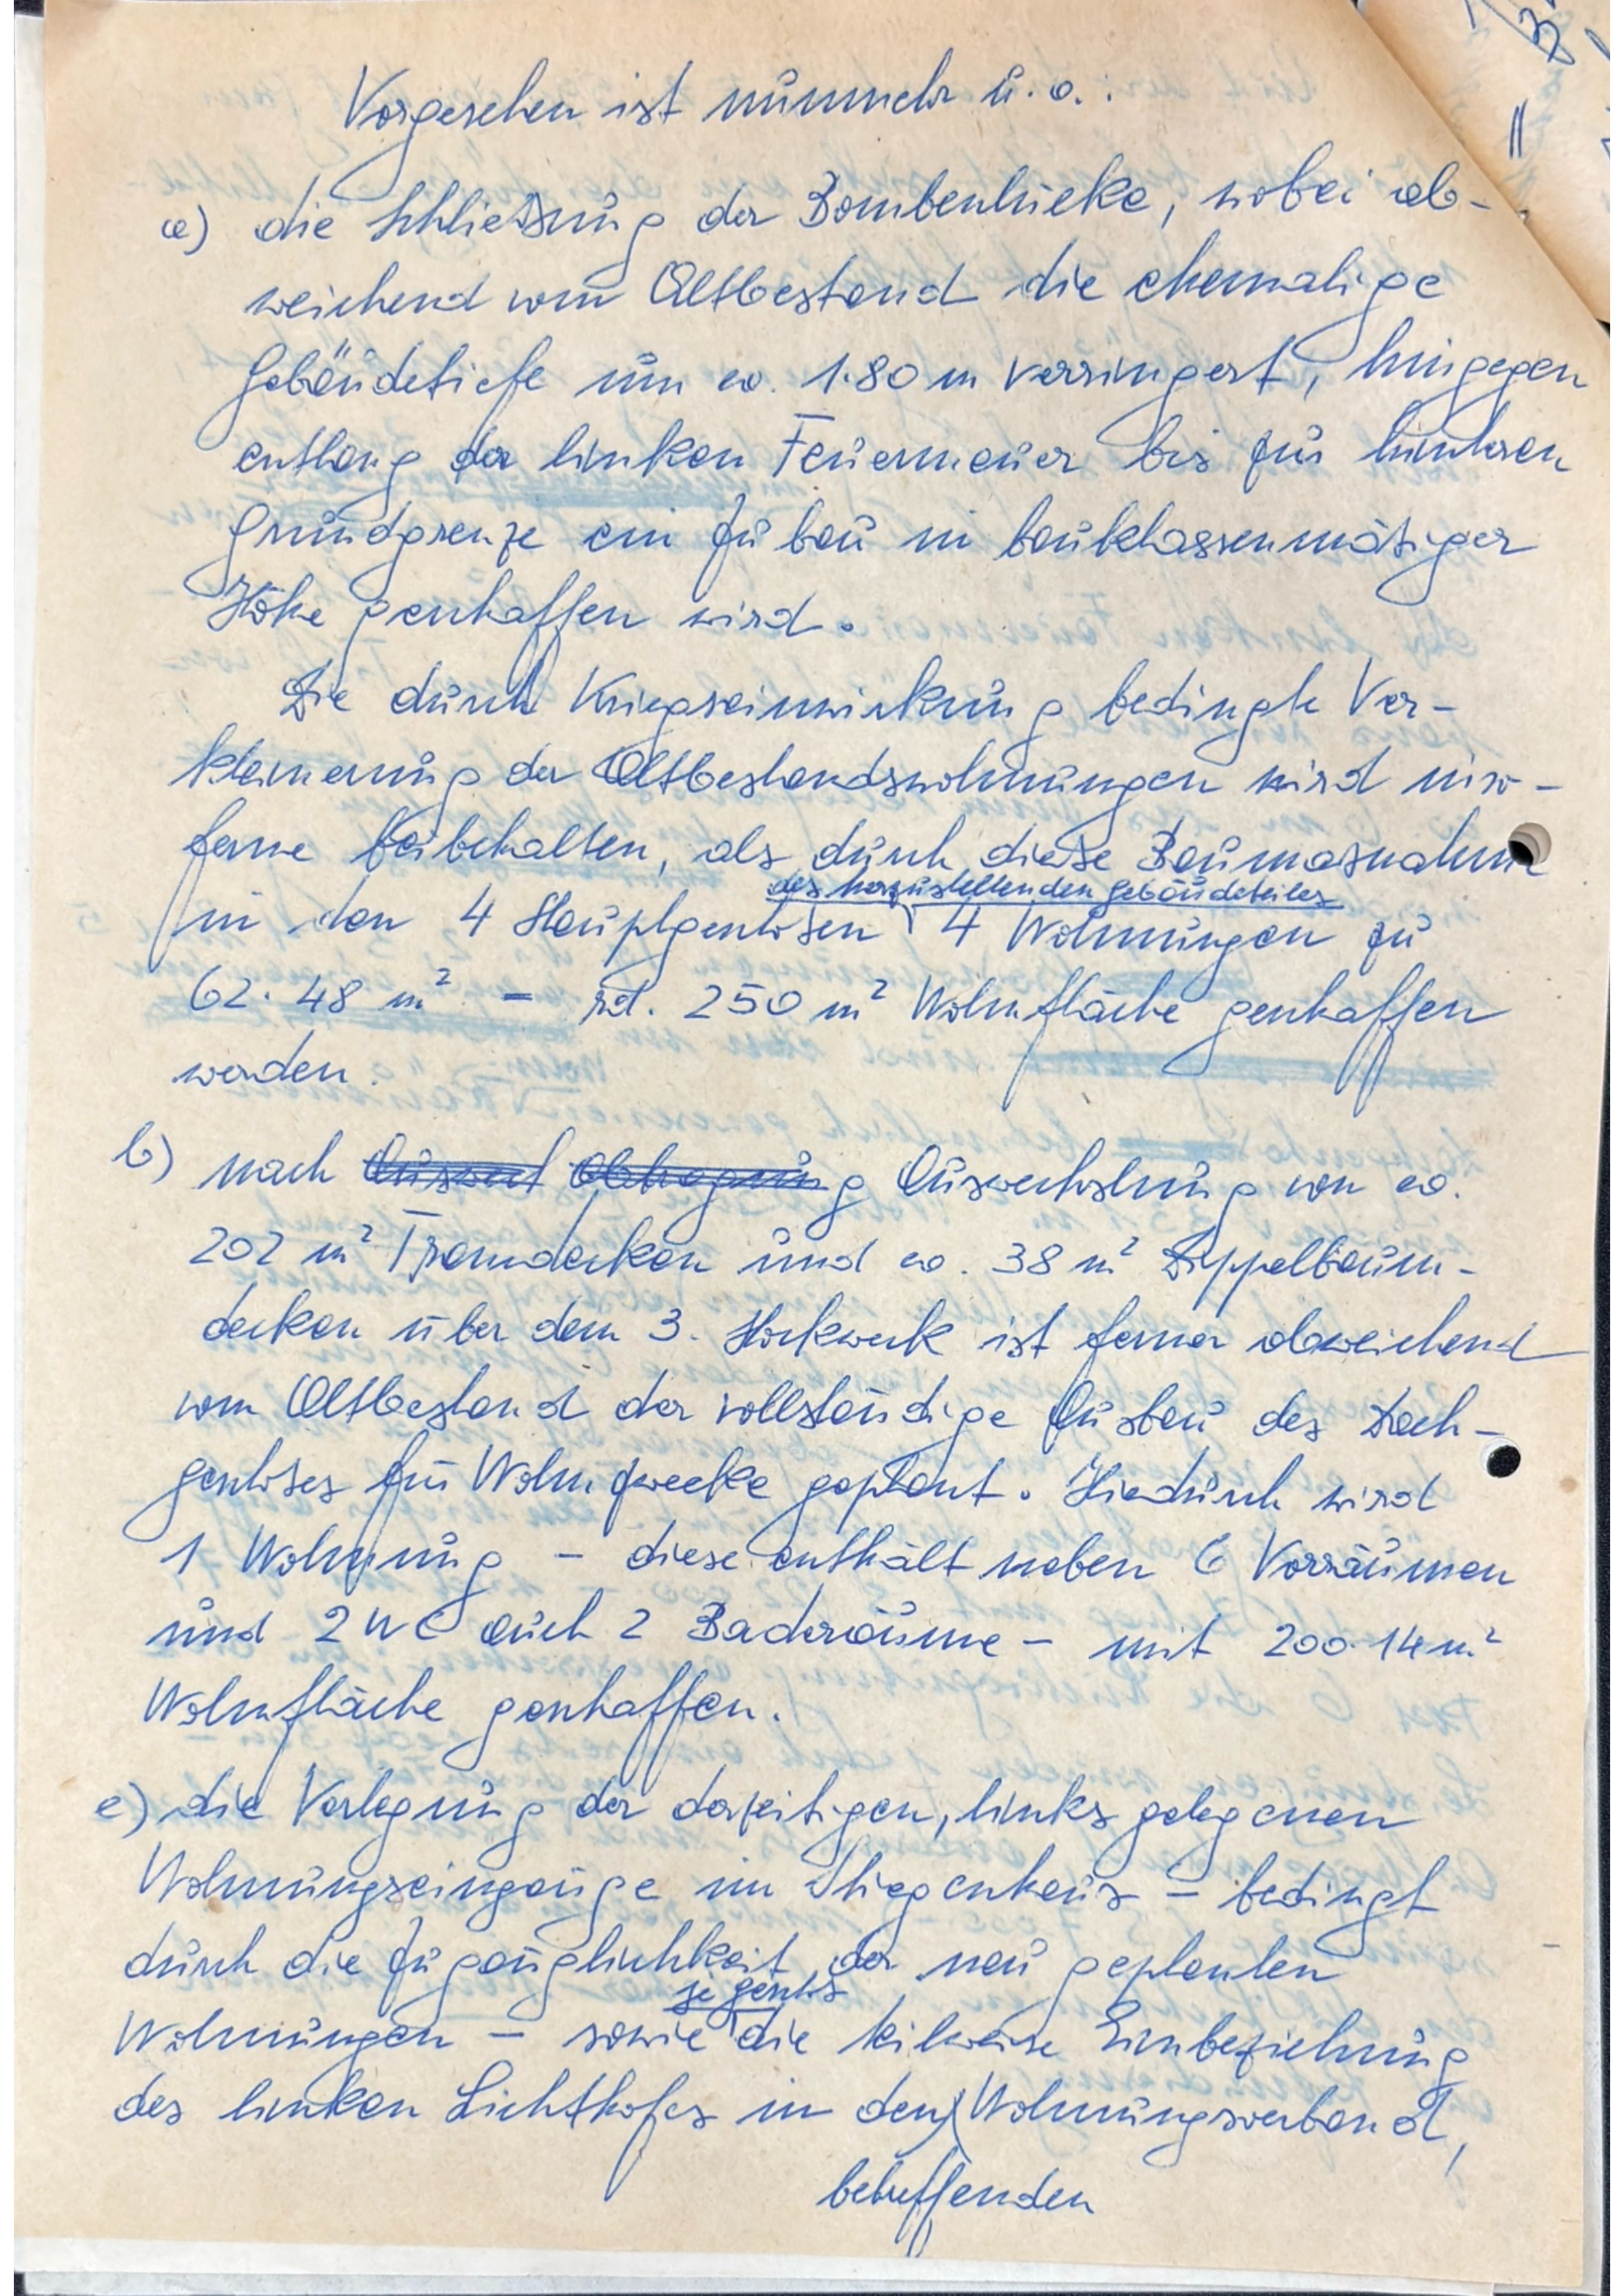 Vorgesehen ist nunmehr u. a. :
a) die Schließung der Bombenlücke, wobei ab-
weichend vom Altbestand die ehemalige
Gebäudetiefe um ca. 1.80 m verringert, hingegen
entlang der linken Feuermauer bis zur hinteren
Grundgrenze ein Zubau in bauklassenmäßiger
Höhe geschaffen wird.
Die durch Kriegseinwirkung bedingte Ver-
kleinerung der Altbestandswohnungen wird inso-
ferne beibehalten, als durch diese Baumaßnahme
des herzustellenden Gebäudeteiles
in den 4 Hauptgeschoßen 4 Wohnungen zu
62.48 m² – rd. 250 m² Wohnfläche geschaffen
werden.
b) nach Auswechslung von ca.
202 m² Tramdecken und ca. 38 m² Dippelbaum-
decken über dem 3. Stockwerk ist ferner abweichend
vom Altbestand der vollständige Ausbau des Dach-
geschoßes für Wohnzwecke geplant. Hiedurch wird
1 Wohnung – diese enthält neben 6 Vorräumen
und 2 WC auch 2 Baderäume – mit 200.14 m²
Wohnfläche geschaffen.
c) die Verlegung der derzeitigen, links gelegenen
Wohnungseingänge im Stiegenhaus – bedingt
durch die Zugänglichkeit der neu geplanten
je Geschoß
Wohnungen – sowie die teilweise Einbeziehung
des linken Lichthofes in den Wohnungsverband,
betreffenden